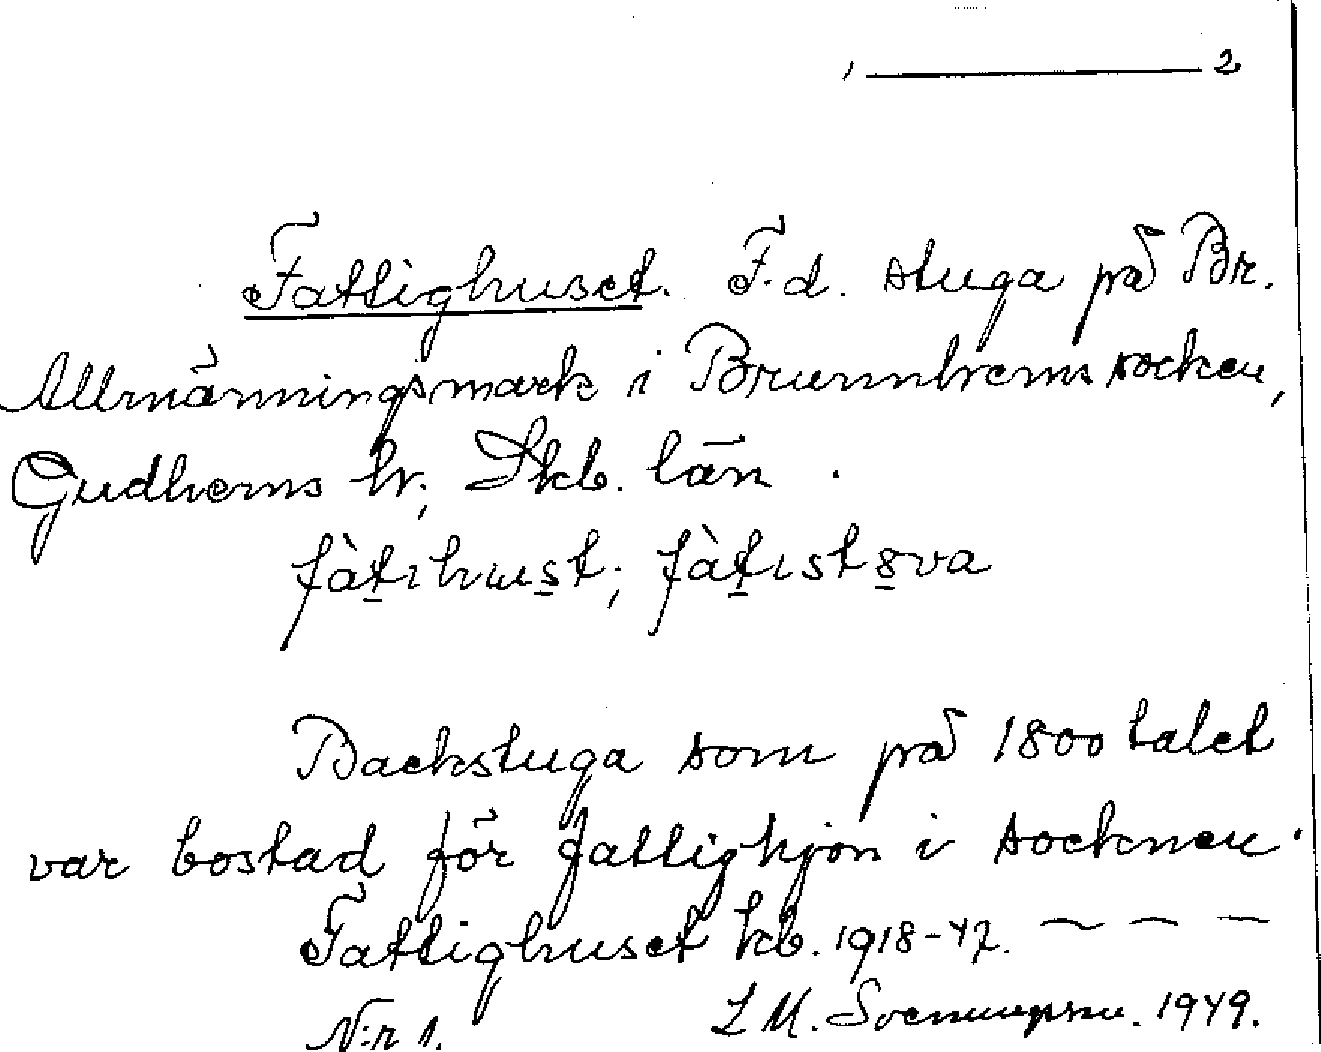 , 2
Fattighuset. F.d. stuga på Br.
Allmänningsmark i Brunnhems socken,
Gudhems hr, Skb. län.
fàt̲ihus̲t; fàt̲ist8̲va
Backstuga som på 1800talet
var bostad för fattighjon i socknen.
Fattighuset kb. 1918-47. ~ ~ ~
N:r 1. L M. Svenungsson. 1949.